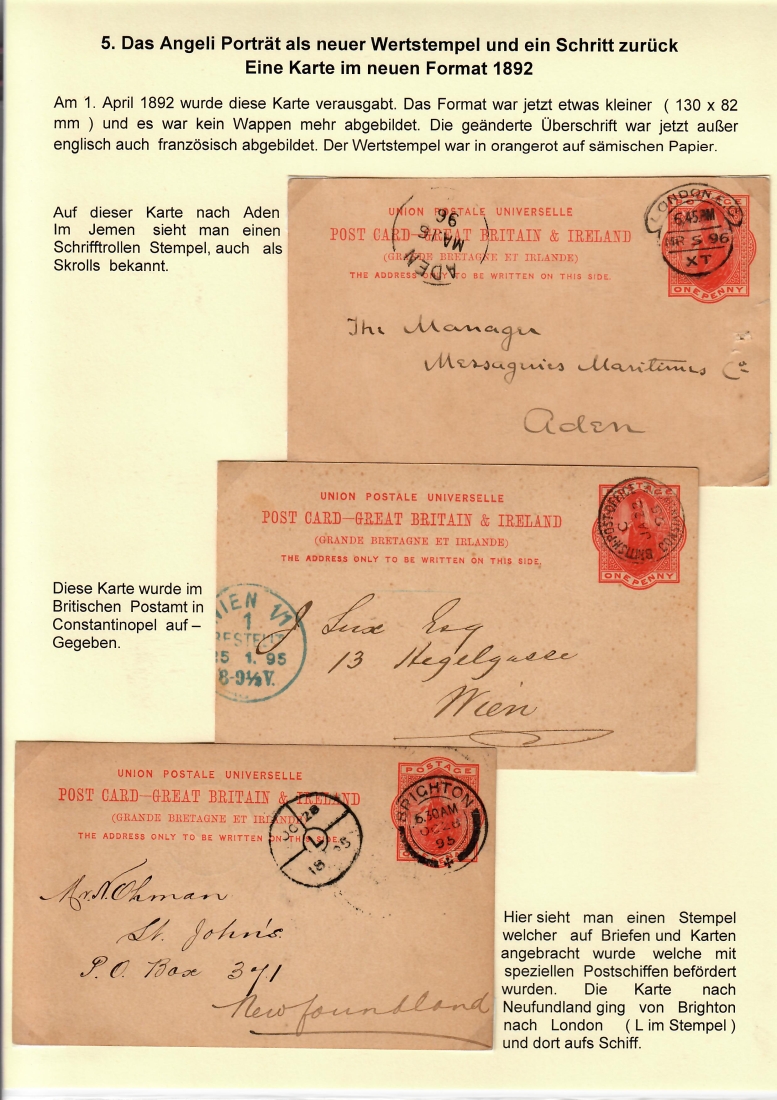 5. Das Angeli Porträt als neuer Wertstempel und ein Schritt zurück
Eine Karte im neuen Format 1892
Am 1. April 1892 wurde diese Karte verausgabt. Das Format war jetzt etwas kleiner ( 130 x 82
mm ) und es war kein Wappen mehr abgebildet. Die geänderte Überschrift war jetzt außer
englisch auch französisch abgebildet. Der Wertstempel war in orangerot auf sämischen Papier.
Auf dieser Karte nach Aden
Im Jemen sieht man einen
Schrifftrollen Stempel, auch als
Skrolls bekannt.
UNION POSTALE UNIVERSELLE
POST CARD—GREAT BRITAIN & IRELAND
(GRANDE BRETAGNE ET IRLANDE)
THE ADDRESS ONLY TO BE WRITTEN ON THIS SIDE.
ADEN
MA
96
LONDON
6.45PM
96
XT
ONE PENNY
The Manager
Messageries Maritimes Co
Aden
UNION POSTALE UNIVERSELLE
POST CARD—GREAT BRITAIN & IRELAND
(GRANDE BRETAGNE ET IRLANDE)
THE ADDRESS ONLY TO BE WRITTEN ON THIS SIDE.
BRITISH-POST-OFFICE
ONE PENNY
Diese Karte wurde im
Britischen Postamt in
Constantinopel auf –
Gegeben.
WIEN 1/1
1
BESTELLT
25 1. 95
8-9½V.
J Lux Esq
13 Hegelgasse
Wien
UNION POSTALE UNIVERSELLE
POST CARD—GREAT BRITAIN & IRELAND
(GRANDE BRETAGNE ET IRLANDE)
THE ADDRESS ONLY TO BE WRITTEN ON THIS SIDE.
POSTAGE
BRIGHTON
6.30AM
OC 28
95
OC 28
L
95
18
Mr. N. Ohman
St. John's
P.O. Box 371
Newfoundland
Hier sieht man einen Stempel
welcher auf Briefen und Karten
angebracht wurde welche mit
speziellen Postschiffen befördert
wurden. Die Karte nach
Neufundland ging von Brighton
nach London ( L im Stempel )
und dort aufs Schiff.